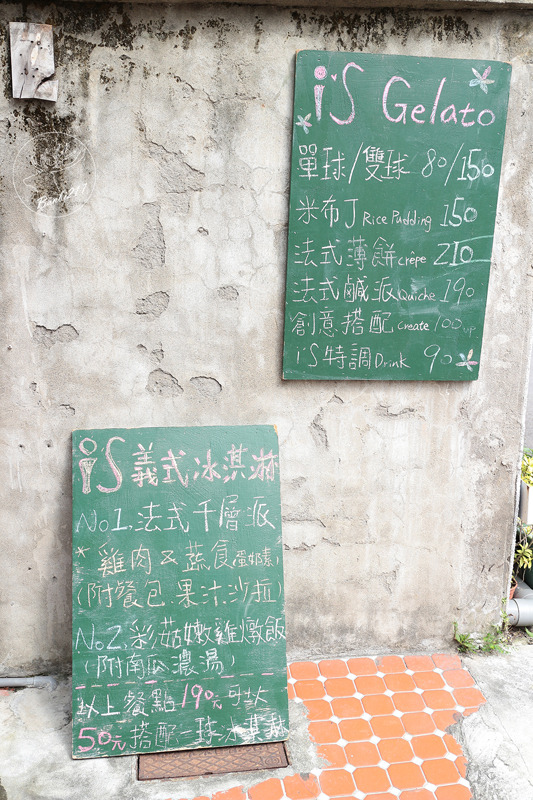 i's Gelato
單球/雙球 80/150
米布丁 Rice Pudding 150
法式薄餅 crêpe 210
法式鹹派 Quiche 190
創意搭配 Create 100up
i's特調 Drink 90
iS義式冰淇淋
No1.法式千層派
*雞肉&蔬食(蛋奶素)
(附餐包.果汁.沙拉)
No2.彩菇嫩雞燉飯
(附南瓜濃湯)
以上餐點190元可加
50元搭配一球冰淇淋